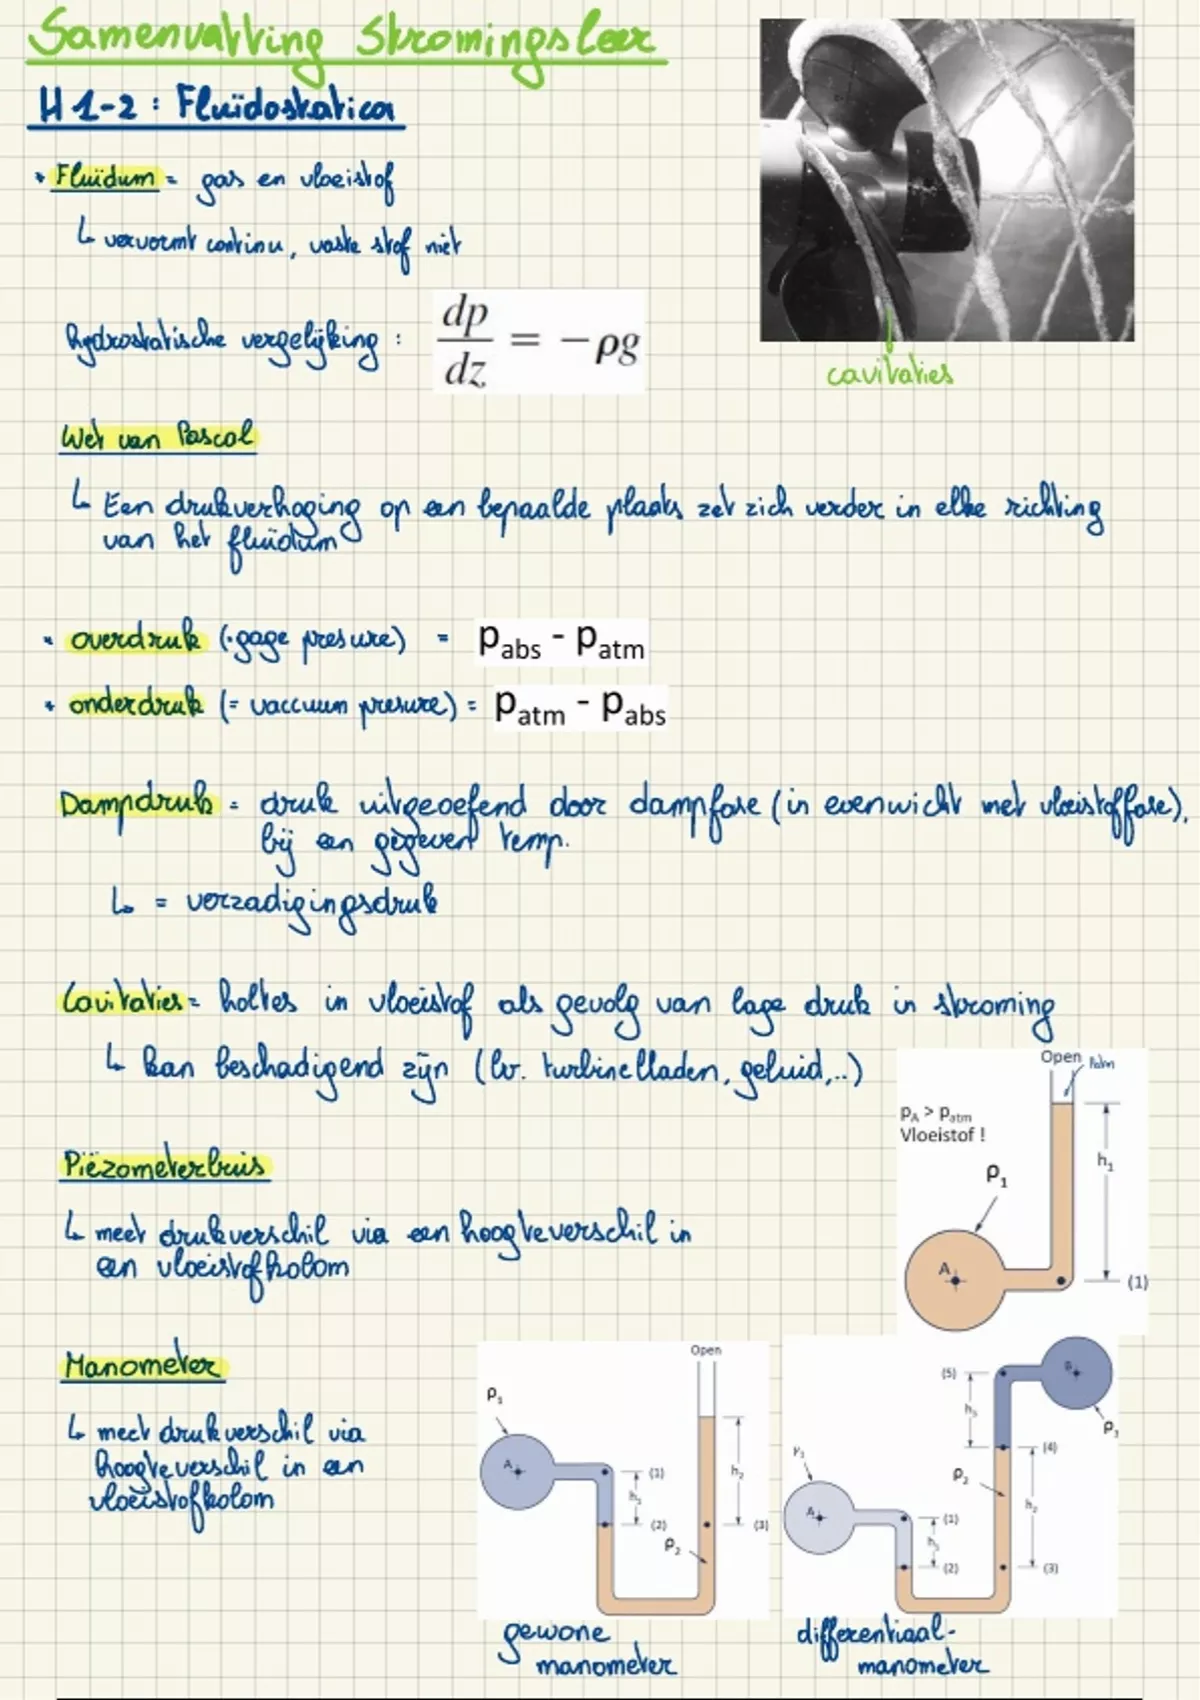 Samenvatting Stromingsleer
H 1-2 : Fluïdostatica
* Fluïdum = gas en vloeistof
↳ vervormt continu, vaste stof niet
hydrostatische vergelijking : dp/dz = -ρg
cavitaties
Wet van Pascal
↳ Een drukverhoging op een bepaalde plaats zet zich verder in elke richting
van het fluïdum
* overdruk (=gage presure) = pabs - patm
* onderdruk (= vaccuum presure) = patm - pabs
Dampdruk = druk uitgeoefend door dampfase (in evenwicht met vloeistoffase),
bij een gegeven temp.
↳ = verzadigingsdruk
Cavitaties = holtes in vloeistof als gevolg van lage druk in stroming
↳ kan beschadigend zijn (bv. turbinebladen, geluid,..)
Open Patm
pA > patm
Vloeistof !
h1
ρ1
A
(1)
Piëzometerbuis
↳ meet drukverschil via een hoogteverschil in
een vloeistofkolom
Manometer
↳ meet drukverschil via
hoogteverschil in een
vloeistofkolom
Open
ρ1
A
(1)
h1
h2
(2)
(3)
ρ2
gewone
manometer
(5)
B
h3
ρ3
(4)
γ1
ρ2
h2
A
(1)
h1
(2)
(3)
differentiaal-
manometer